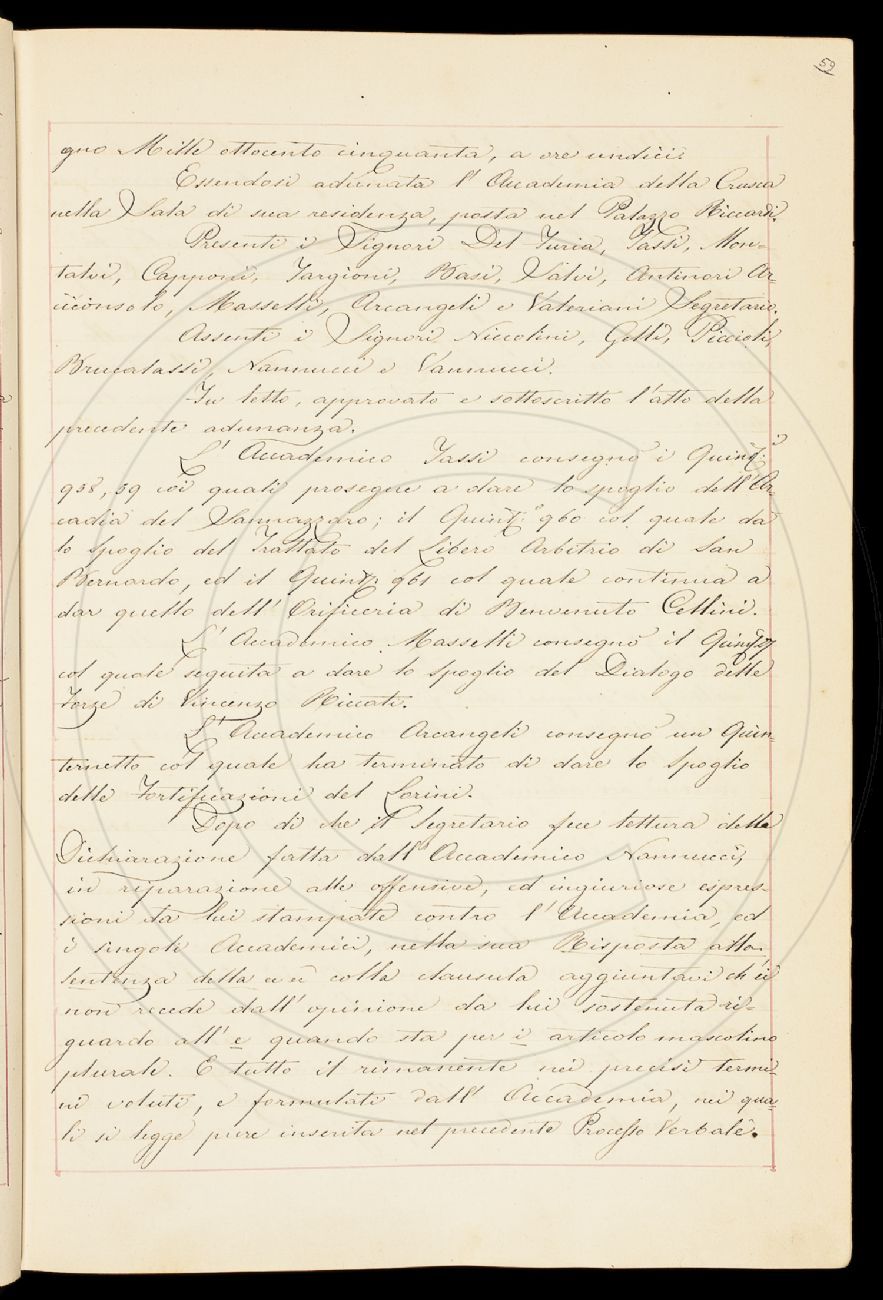 59
gno Mille ottocento cinquanta, a ore undici.
Essendosi adunata l'Accademia della Crusca
nella Sala di sua residenza, posta nel Palazzo Riccardi.
Presenti i Signori Del Furia, Tassi, Mon-
talvi, Capponi, Targioni, Basi, Salvi, Antinori Ar-
ciconsolo, Masselli, Arcangeli e Valeriani Segretario.
Assenti i Signori Niccolini, Gelli, Piccioli,
Brucalassi, Nannucci e Vannucci.
Fu letto, approvato e sottoscritto l'atto della
precedente adunanza.
L'Accademico Tassi consegnò i Quint.ⁱ
958, 59 coi quali prosegue a dare lo spoglio dell'Ar-
cadia del Sannazzaro; il Quint.° 960 col quale dà
lo spoglio del Trattato del Libero Arbitrio di San
Bernardo, ed il Quint.° 961 col quale continua a
dar quello dell'Orificeria di Benvenuto Cellini.
L'Accademico Masselli consegnò il Quint.°
col quale seguita a dare lo spoglio del Dialogo delle
Forze di Vincenzo Riccati.
L'Accademico Arcangeli consegnò un Quin-
ternetto col quale ha terminato di dare lo spoglio
delle Fortificazioni del Lorini.
Dopo di che il Segretario fece lettura della
Dichiarazione fatta dall'Accademico Nannucci,
in riparazione alle offensive, ed ingiuriose espres-
sioni da lui stampate contro l'Accademia, ed
i singoli Accademici, nella sua Risposta alla
Sentenza della colla clausula aggiuntavi ch'ei
non recede dall'opinione da lui sostenuta ri-
guardo all'e quando sta per i articolo mascolino
plurale. E tutto il rimanente nei precisi termi-
ni voluti, e formulati dall'Accademia, nei qua-
li si legge pure inserita nel precedente Processo Verbale.